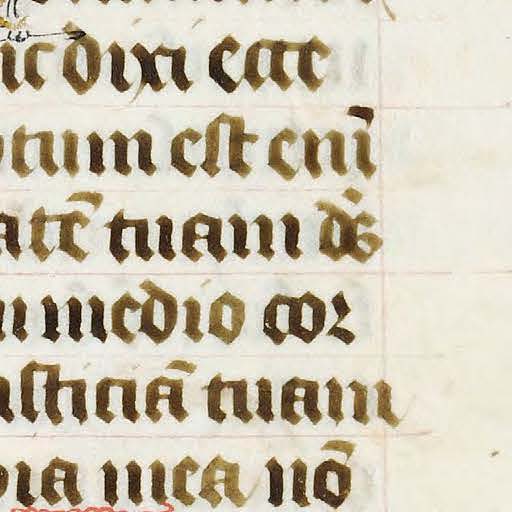 ic dixi ecce
ptum est enī
atē tuam ds̄
in medio cor
usticiā tuam
bia mea nō